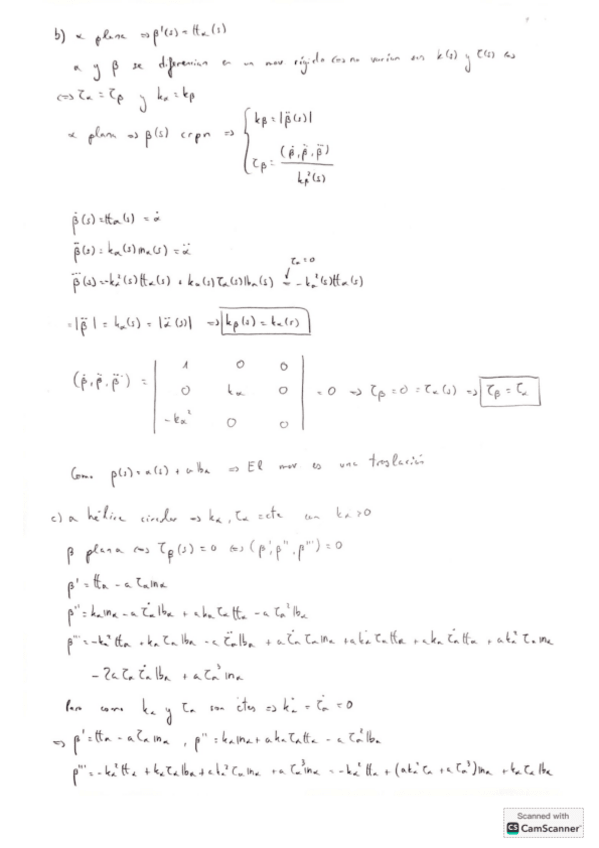 b) α plana ⇒ β'(s) = 𝕥α(s)
α y β se diferencian en un mov rígido ⇔ no varían sus k(s) y τ(s) ⇔
⇔ τα = τβ y kα = kβ
α plana ⇒ β(s) crpn ⇒ { kβ = |β̈(s)|
τβ = (β̇, β̈, β⃛) / kβ²(s)
β̇(s) = 𝕥α(s) = α̇
β̈(s) = kα(s) 𝕟α(s) = α̈
τα = 0
β⃛(s) = -kα²(s) 𝕥α(s) + kα(s) τα(s) 𝕓α(s) = -kα²(s) 𝕥α(s)
= |β̈| = kα(s) = |α̈(s)| ⇒ kβ(s) = kα(s)
(β̇, β̈, β⃛) = | 1 0 0 |
| 0 kα 0 | = 0 ⇒ τβ = 0 = τα(s) ⇒ τβ = τα
| -kα² 0 0 |
Como β(s) = α(s) + a 𝕓α ⇒ El mov es una traslación
c) α hélice circular ⇒ kα, τα = cte con kα > 0
β plana ⇔ τβ(s) = 0 ⇔ (β', β'', β''') = 0
β' = 𝕥α - a τα 𝕟α
β'' = kα 𝕟α - a τ̇α 𝕟α + a kα τα 𝕥α - a τα² 𝕓α
β''' = -kα² 𝕥α + kα τα 𝕓α - a τ̈α 𝕟α + a τ̇α τα 𝕟α + a k̇α τα 𝕥α + a kα τ̇α 𝕥α + a kα² τα 𝕟α
- 2a τα τ̇α 𝕓α + a τα³ 𝕟α
Pero como kα y τα son ctes ⇒ k̇α = τ̇α = 0
⇒ β' = 𝕥α - a τα 𝕟α , β'' = kα 𝕟α + a kα τα 𝕥α - a τα² 𝕓α
β''' = -kα² 𝕥α + kα τα 𝕓α + a kα² τα 𝕟α + a τα³ 𝕟α = -kα² 𝕥α + (a kα² τα + a τα³) 𝕟α + kα τα 𝕓α
Scanned with
CS CamScanner